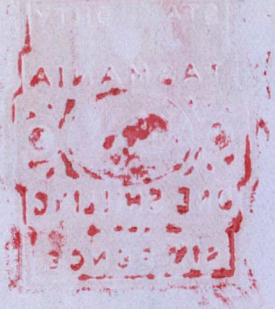 STAMP DUTY
TASMANIA
ONE SHILLING
SIX PENCE